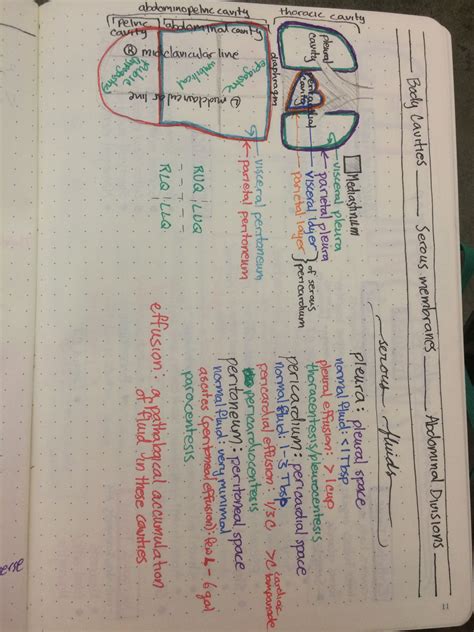 Body Cavities Serous membranes Abdominal Divisions
thoracic cavity
abdominopelvic cavity
pelvic cavity
abdominal cavity
pleural cavity
pericardial cavity
diaphragm
Mediastinum
visceral pleura
parietal pleura
visceral layer
parietal layer
of serous pericardium
(R) midclavicular line
(L) midclavicular line
umbilical
visceral peritoneum
parietal peritoneum
RUQ | LUQ
RLQ | LLQ
serous fluids
pleura: pleural space
normal fluid: <1 Tbsp
pleural effusion: >1 cup
thoracentesis/pleurocentesis
pericardium: pericardial space
normal fluid: 1-3 Tbsp
pericardial effusion: 1/3 C >C cardiac tamponade
pericardiocentesis
peritoneum: peritoneal space
normal fluid: very minimal
ascites (peritoneal effusion): - 6 gal
paracentesis
effusion: a pathological accumulation
of fluid in these cavities
11